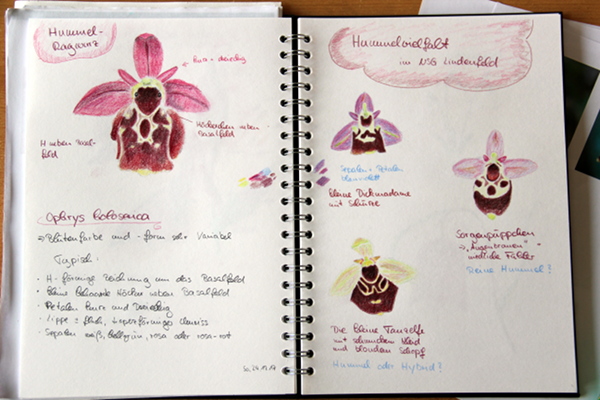 Hummel-
Ragwurz
kurz + dreieckig
Höckerchen neben
Basalfeld
H neben Basal-
feld
Ophrys holoserica
→ Blütenfarbe und -form sehr variabel
Typisch:
• H-förmige Zeichnung um das Basalfeld
• kleine behaarte Höcker neben Basalfeld
• Petalen kurz und dreieckig
• Lippe ± flach,
• Sepalen weiß, hellgrün, rosa oder rosa-rot
Hummelvielfalt
im NSG Lindenfeld
Sepalen + Petalen
kleine Dickmadame
mit Schürze
Sorgenpüppchen
→ "Augenbrauen"
niedliche Fühler
Reine Hummel?
Die kleine Tanzelfe
mit schwarzem Kleid
und blondem Schopf
Hummel oder Hybrid?